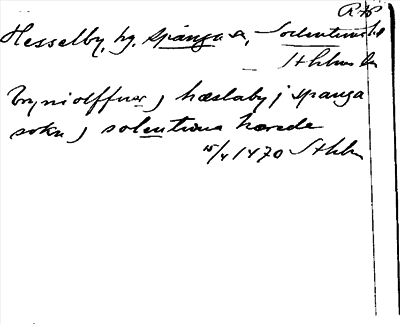 Hesselby, hg. Spånga sn, Sollentuna hd
Sthlms län
bryniolffuar j hæslaby j spanga
sokn j solentuna hærede
15/4 1470 Sthlm